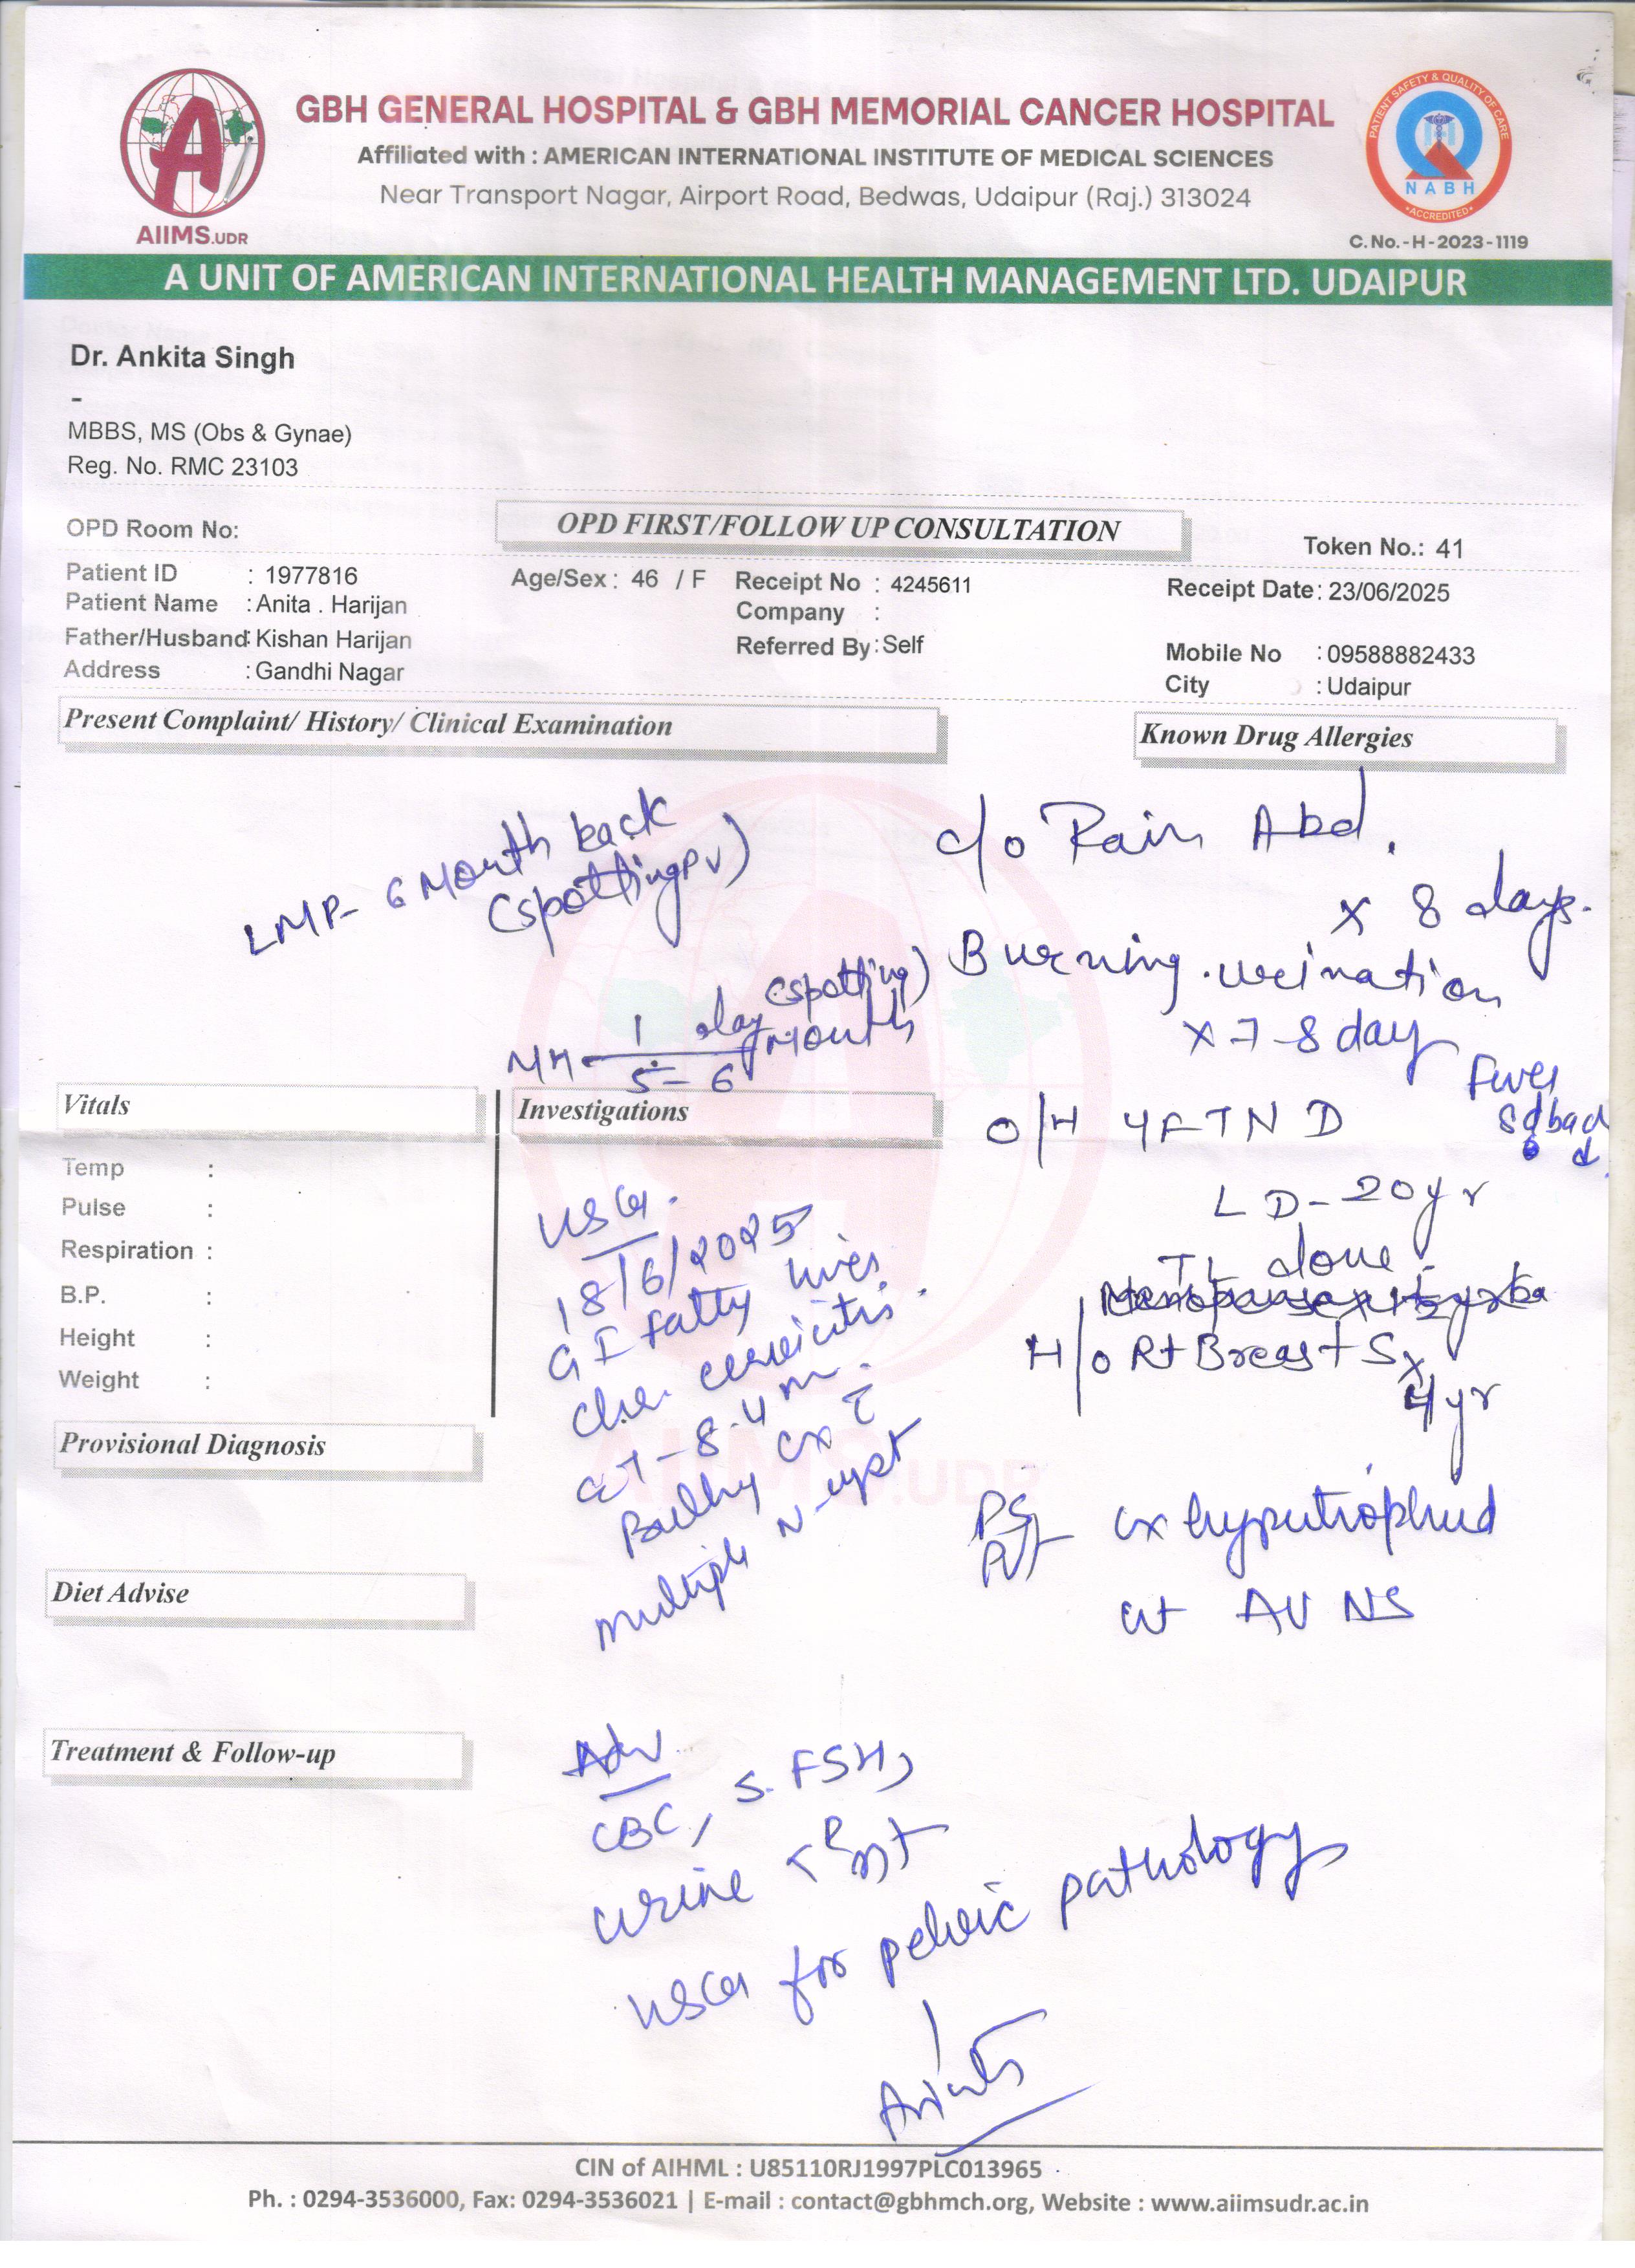 GBH GENERAL HOSPITAL & GBH MEMORIAL CANCER HOSPITAL
Affiliated with : AMERICAN INTERNATIONAL INSTITUTE OF MEDICAL SCIENCES
Near Transport Nagar, Airport Road, Bedwas, Udaipur (Raj.) 313024
AIIMS.UDR
PATIENT SAFETY & QUALITY OF CARE
NABH
ACCREDITED
C.No.-H-2023-1119
A UNIT OF AMERICAN INTERNATIONAL HEALTH MANAGEMENT LTD. UDAIPUR
Dr. Ankita Singh
-
MBBS, MS (Obs & Gynae)
Reg. No. RMC 23103
OPD Room No:
OPD FIRST/FOLLOW UP CONSULTATION
Token No.: 41
Patient ID : 1977816
Age/Sex : 46 / F
Receipt No : 4245611
Receipt Date: 23/06/2025
Patient Name : Anita . Harijan
Company :
Father/Husband: Kishan Harijan
Referred By : Self
Mobile No : 09588882433
Address : Gandhi Nagar
City : Udaipur
Present Complaint/ History/ Clinical Examination
Known Drug Allergies
LMP- 6 Month back
(spotting PV)
MH 1 day (spotting)
5-6 Month
c/o Pain Abd.
x 8 days.
Burning urination
x 7-8 day
Fever
O/H 4FTND
LD-20yr
TL done
H/o Rt Breast Sx
4yr
Vitals
Temp :
Pulse :
Respiration :
B.P. :
Height :
Weight :
Investigations
USG.
18/6/2025
G I fatty liver
Chr. cervicitis.
ET-8.4m.
Bulky cx c̄
multiple N-cyst
PS
PV cx hypertrophied
ut AV NS
Provisional Diagnosis
Diet Advise
Treatment & Follow-up
Adv
CBC, S. FSH,
urine
USG for pelvic pathology
AIIMS.UDR
CIN of AIHML : U85110RJ1997PLC013965
Ph. : 0294-3536000, Fax: 0294-3536021 | E-mail : contact@gbhmch.org, Website : www.aiimsudr.ac.in